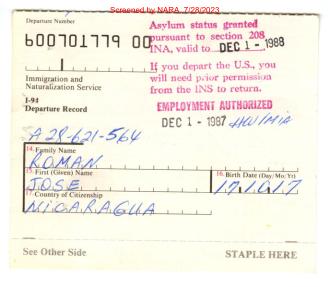 Screened by NARA, 7/28/2023
Departure Number
600701779 00
Immigration and
Naturalization Service
I-94
Departure Record
Asylum status granted
pursuant to section 208
INA, valid to DEC 1 - 1988
If you depart the U.S., you
will need prior permission
from the INS to return.
EMPLOYMENT AUTHORIZED
DEC 1 - 1987 HW/MIA
A28-621-564
14. Family Name
ROMAN
15. First (Given) Name
JOSE
16. Birth Date (Day/Mo/Yr)
17.10.17
17. Country of Citizenship
NICARAGUA
See Other Side
STAPLE HERE